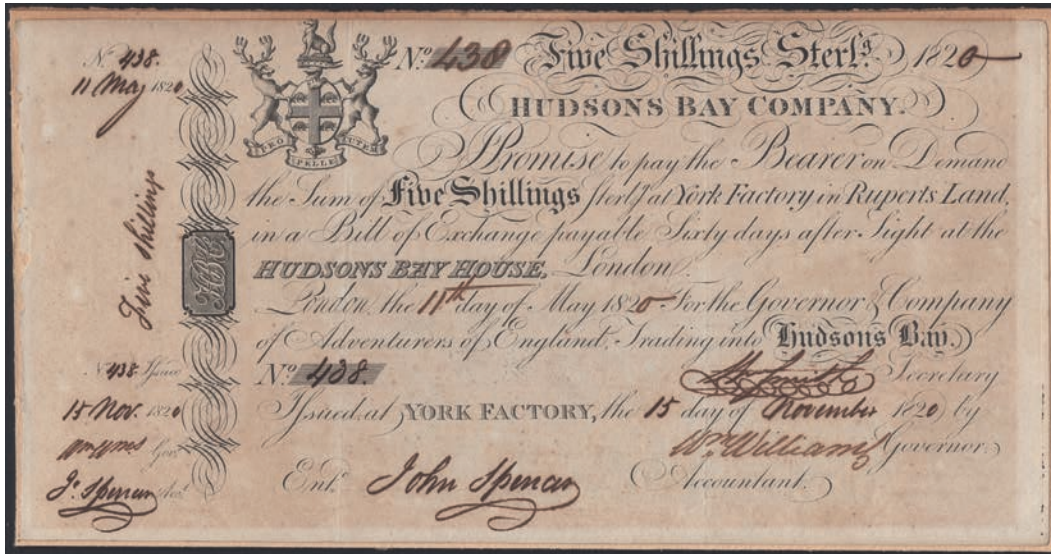 No. 438.
11 May 1820
Five Shillings
HBC
No. 438 Issued
15 Nov. 1820
Govr.
J. Spencer Acct.
No. 438 Five Shillings Sterlg. 1820
PRO PELLE CUTEM
HUDSONS BAY COMPANY.
I Promise to pay the Bearer on Demand
the Sum of Five Shillings Sterlg. at York Factory in Ruperts Land,
in a Bill of Exchange payable Sixty days after Sight at the
HUDSONS BAY HOUSE, London.
London, the 11th day of May 1820 For the Governor & Company
of Adventurers of England, Trading into Hudsons Bay.
No. 438. Secretary
Issued at YORK FACTORY, the 15 day of November 1820 by
Wm. Williams Governor.
Entd. John Spencer Accountant.